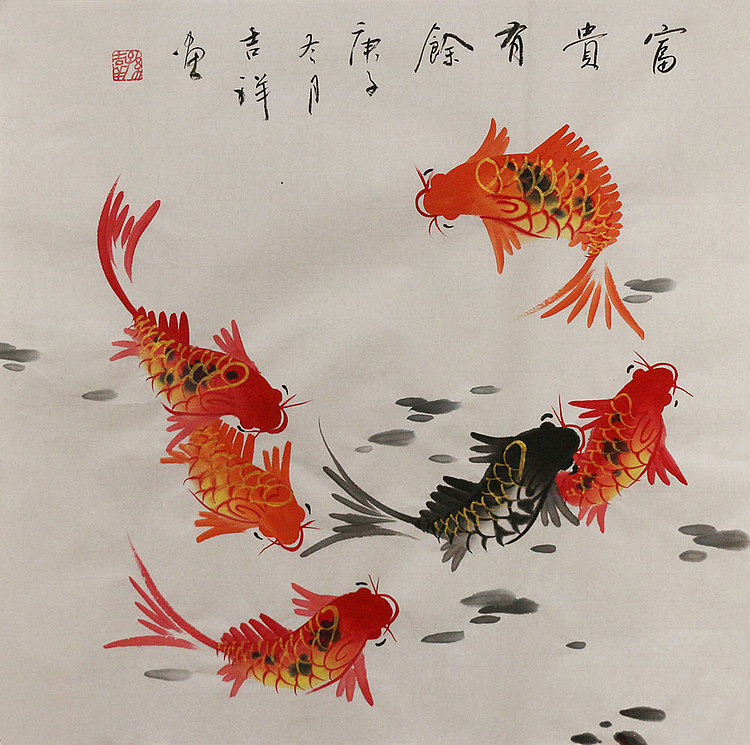 富貴有餘
庚子
冬月
吉祥
画